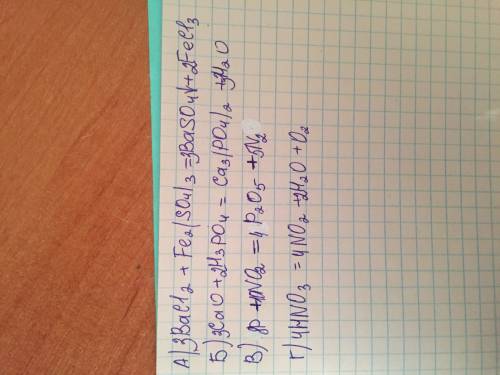 А) 3BaCl2 + Fe2(SO4)3 = 3BaSO4↓ + 2FeCl3
Б) 3CaO + 2H3PO4 = Ca3(PO4)2 + 3H2O
В) 8P + 10NO2 = 4P2O5 + 5N2
Г) 4HNO3 = 4NO2 + 2H2O + O2